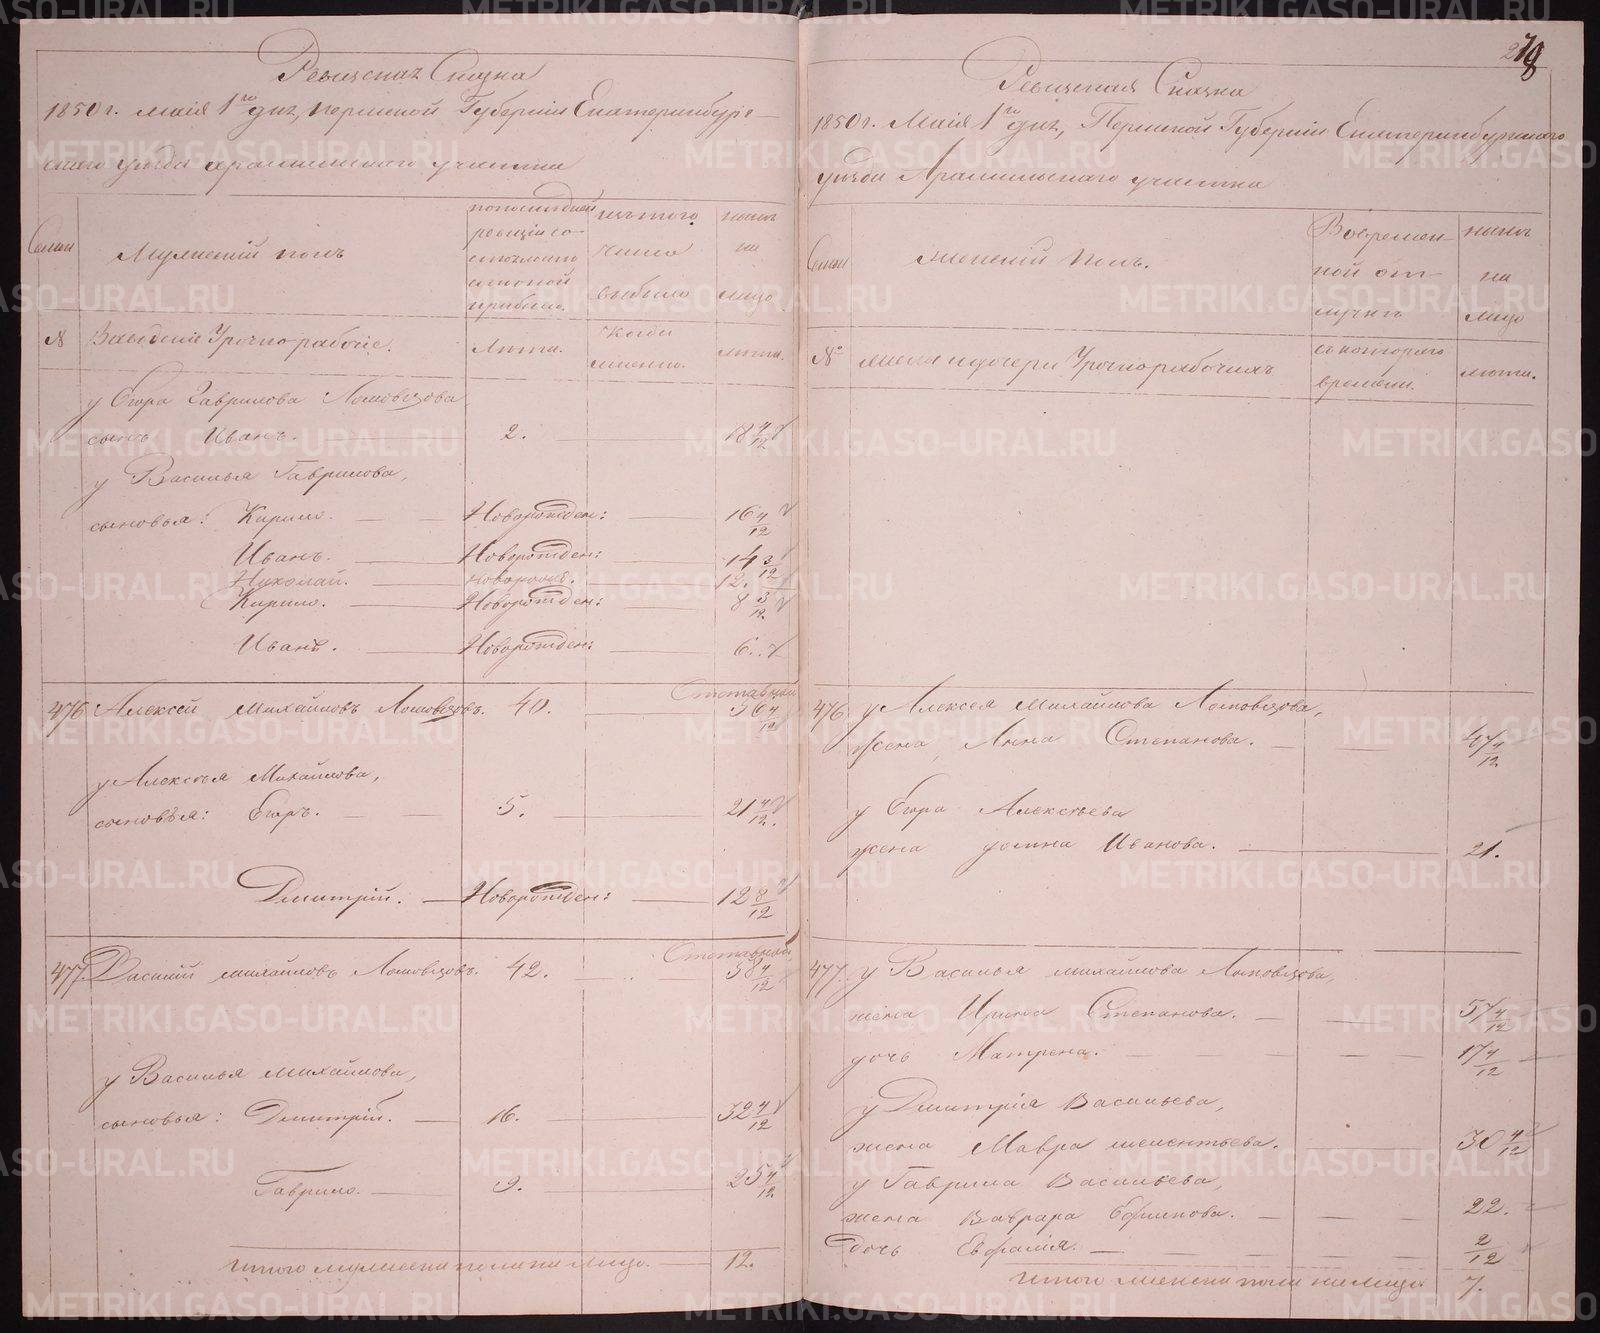 Ревизская Сказка
1850 г. маія 1го дня, Пермской Губерніи Екатеринбург-
скаго уезда арамильскаго участка
Семьи
Мужескій полъ
по последней ревизіи состояло и оной прибыло.
изъ того числа выбыло
ныне на лицо
№
Заводскіе Урочно рабочіе.
Лета.
Когда именно.
лета.
у Егора Гаврилова Ломовцова
сынъ Иванъ. 2. 18 4/12
у Василья Гаврилова,
сыновья: Кирило. Новорожден: 16 4/12
Иванъ. Новорожден: 14 3/12
Николай. новорожд. 12.
Кирило. Новорожден: 8 3/12
Иванъ. Новорожден: 6.
Отставной
476 Алексей Михайловъ Ломовцовъ. 40. 56 4/12
у Алексея Михайлова,
сыновья: Егоръ. 5. 21 4/12.
Дмитрій. Новорожден: 12 8/12
Отставной
477. Василий михайловъ Ломовцовъ. 42. 58 4/12
у Василья михайлова,
сыновья: Дмитрій. 16. 32 4/12
Гаврило. 9. 25 4/12
Итого мужеска пола на лицо. 12.
278
Ревизская Сказка
1850 г. Маія 1го дня, Пермской Губерніи Екатеринбургскаго
уезда Арамильскаго участка
Семьи
женскій полъ.
Во временной отлучке
ныне на лицо
№
жены и дочери Урочно рабочихъ
съ котораго времени.
лета.
476 у Алексея михайлова Ломовцова,
жена Анна Степанова. 47 4/12
у Егора Алексеева
жена Иванова. 21.
477. у Василья михайлова Ломовцова,
жена Ирина Степанова. 57 4/12
дочь Матрена. 17 4/12
у Дмитрія Васильева,
жена Мавра 30 4/12
у Гаврила Васильева,
жена Варвара Ефимова. 22.
дочь 2/12
Итого женска пола на лицо 7.
METRIKI.GASO-URAL.RU